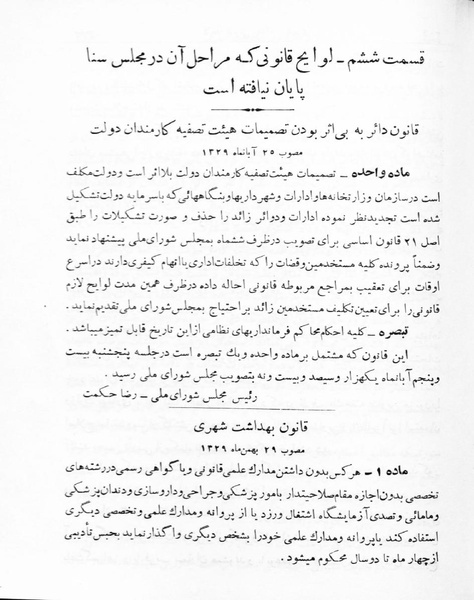 قسمت ششم ـ لوایح قانونی که مراحل آن در مجلس سنا
پایان نیافته است
قانون دائر به بی‌اثر بودن تصمیمات هیئت تصفیه کارمندان دولت
مصوب ۲۵ آبانماه ۱۳۲۹
ماده واحده ـ تصمیمات هیئت تصفیه کارمندان دولت بلااثر است ودولت مکلف
است درسازمان وزارتخانه‌ها و ادارات و شهرداریها و بنگاههائی که باسرمایه دولت تشکیل
شده است تجدیدنظر نموده ادارات ودوائر زائد را حذف و صورت تشکیلات را طبق
اصل ۲۱ قانون اساسی برای تصویب درظرف ششماه بمجلس شورای ملی پیشنهاد نماید
وضمناً پرونده کلیه مستخدمین وقضات را که تخلفات اداری یا اتهام کیفری دارند در اسرع
اوقات برای تعقیب بمراجع مربوطه قانونی احاله داده درظرف همین مدت لوایح لازم
قانونی را برای تعیین تکلیف مستخدمین زائد بر احتیاج بمجلس شورای ملی تقدیم نماید .
تبصره ـ کلیه احکام محاکم فرمانداریهای نظامی از این تاریخ قابل تمیز میباشد .
این قانون که مشتمل بر ماده واحده ویك تبصره است درجلسه پنجشنبه بیست
وپنجم آبانماه یکهزار وسیصد وبیست ونه بتصویب مجلس شورای ملی رسید .
رئیس مجلس شورای ملی ـ رضا حکمت
قانون بهداشت شهری
مصوب ۲۹ بهمن‌ماه ۱۳۲۹
ماده ۱ ـ هرکس بدون داشتن مدارك علمی قانونی ویا گواهی رسمی دررشته‌های
تخصصی بدون اجازه مقام صلاحیتدار بامور پزشکی وجراحی وداروسازی ودندان‌پزشکی
ومامائی وتصدی آزمایشگاه اشتغال ورزد یا از پروانه ومدارك علمی وتخصصی دیگری
استفاده کند یاپروانه ومدارك علمی خودرا بشخص دیگری واگذار نماید بحبس تأدیبی
ازچهار ماه تا دوسال محکوم میشود .